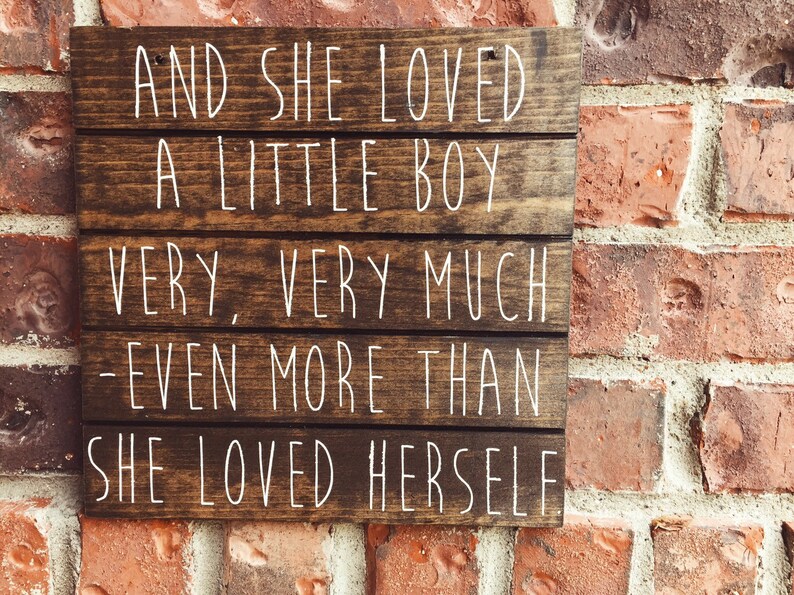 AND SHE LOVED
A LITTLE BOY
VERY, VERY MUCH
-EVEN MORE THAN
SHE LOVED HERSELF.